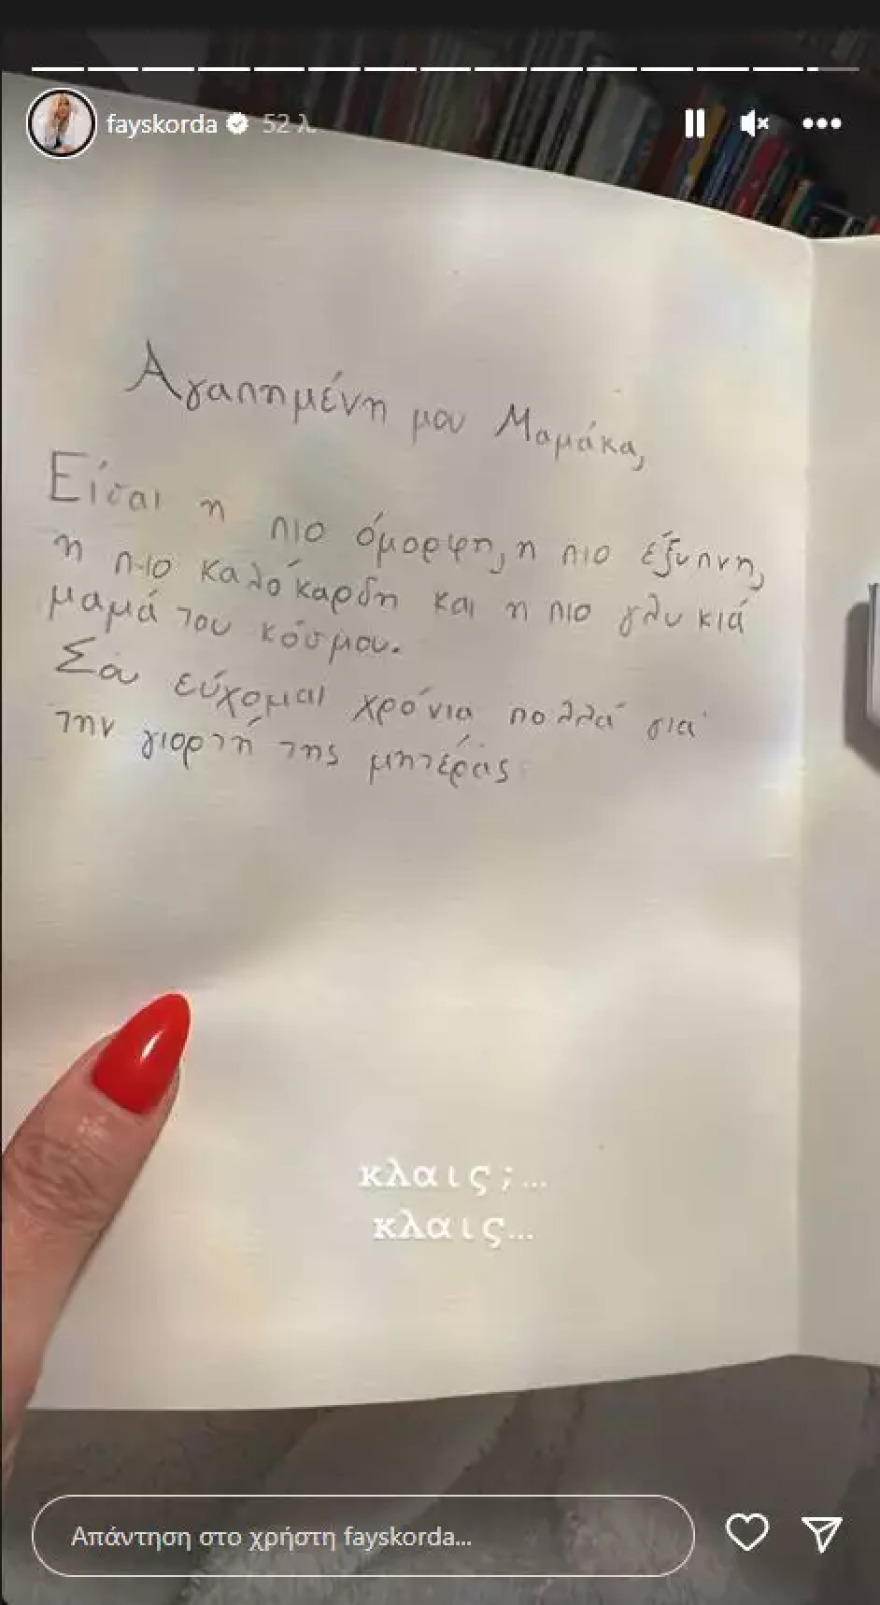 fayskorda 52 λ.
Αγαπημένη μου Μαμάκα,
Είσαι η πιο όμορφη, η πιο έξυπνη,
η πιο καλόκαρδη και η πιο γλυκιά
μαμά του κόσμου.
Σου εύχομαι χρόνια πολλά για
την γιορτή της μητέρας
κλαις;...
κλαις...
Απάντηση στο χρήστη fayskorda...